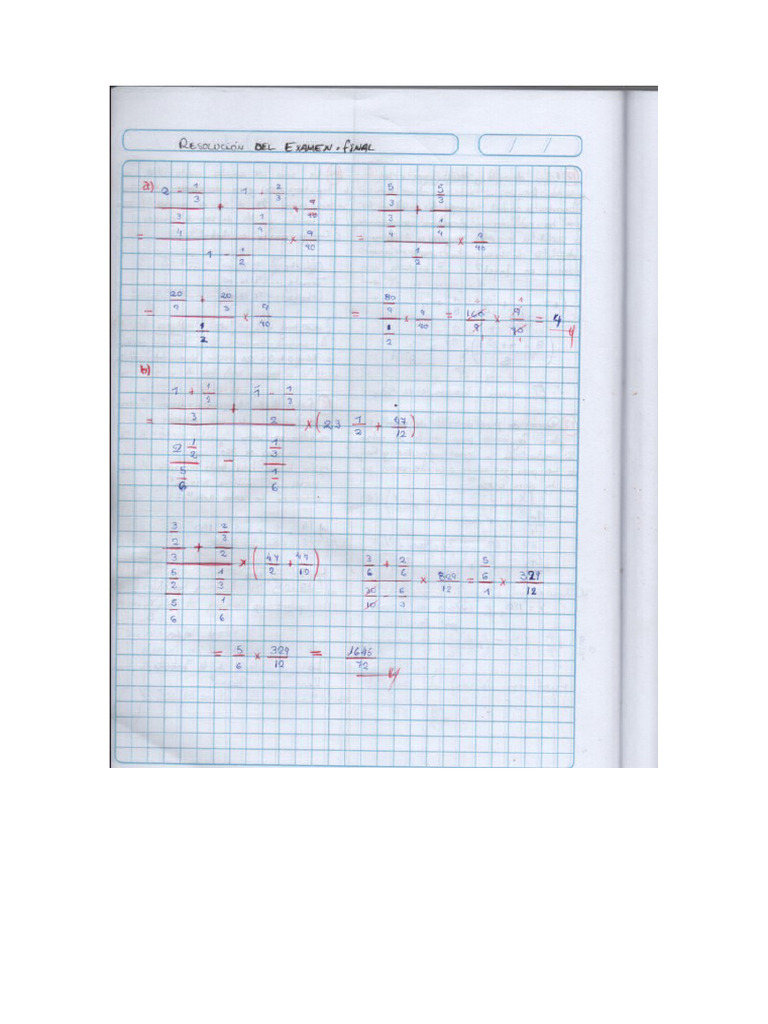 RESOLUCIÓN DEL EXAMEN FINAL
a)
= ((2 - 1/3)/(3/4) + (1 + 2/3)/(1/4) × 9/40)/(1 - 1/2) × 9/40 = ((5/3)/(3/4) + (5/3)/(1/4))/(1/2) × 9/40
= (20/9 + 20/3)/(1/2) × 9/40 = (80/9)/(1/2) × 9/40 = 160/9 × 9/40 = 4
b)
= ((1 + 1/2)/3 + (1 - 1/3)/2)/((2 1/2)/(5/6) - (1/3)/(1/6)) × (23 1/2 + 47/12)
((3/2)/3 + (2/3)/2)/((5/2)/(5/6) - (1/3)/(1/6)) × (47/2 + 47/12) (3/6 + 2/6)/(30/10 - 6/3) × 329/12 = (5/6)/1 × 329/12
= 5/6 × 329/12 = 1645/72